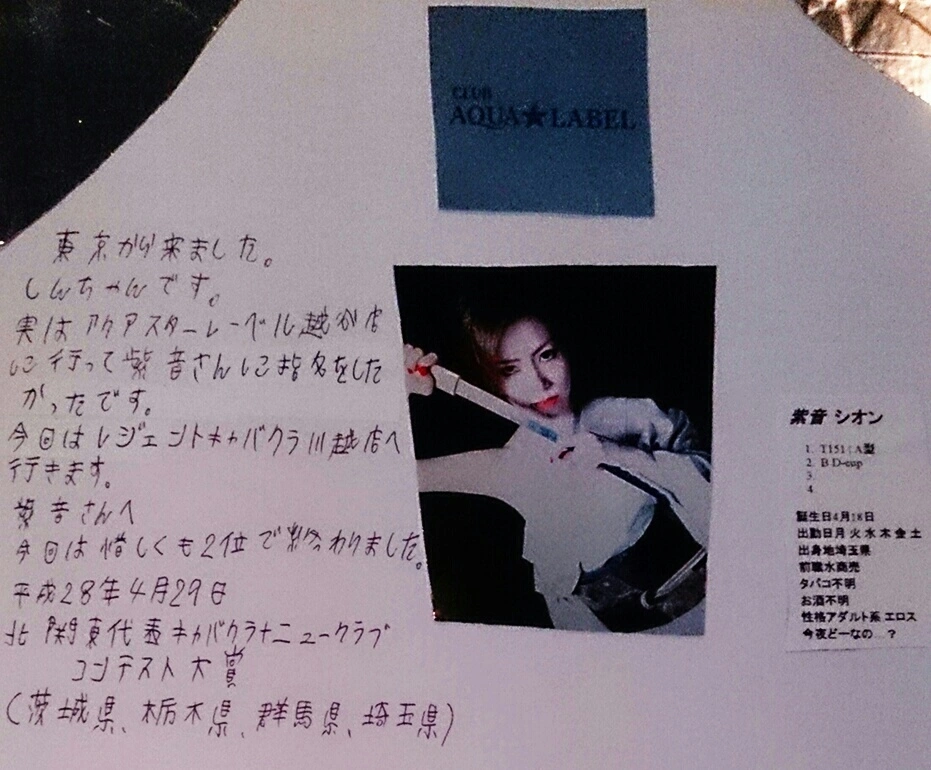 CLUB
AQUA★LABEL
東京から来ました。
しんちゃんです。
実はアクアスターレーベル越谷店
に行って紫音さんに指名をした
かったです。
今回はレジェントキャバクラ川越店へ
行きます。
紫音さんへ
今回は惜しくも2位で終わりました。
平成28年4月29日
北関東代表キャバクラ+ニュークラブ
コンテスト大賞
(茨城県、栃木県、群馬県、埼玉県)
紫音 シオン
1. T151 : A型
2. B D-cup
3.
4.
誕生日4月18日
出勤日月 火 水 木 金 土
出身地埼玉県
前職水商売
タバコ不明
お酒不明
性格アダルト系 エロス
今夜どーなの…?